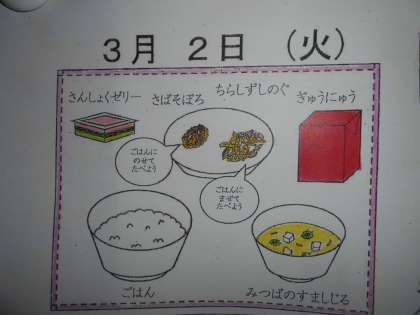 3月 2日 (火)
さんしょくゼリー
さばそぼろ
ちらしずしのぐ
ぎゅうにゅう
ごはんに
のせて
たべよう
ごはんに
まぜて
たべよう
ごはん
みつばのすましじる